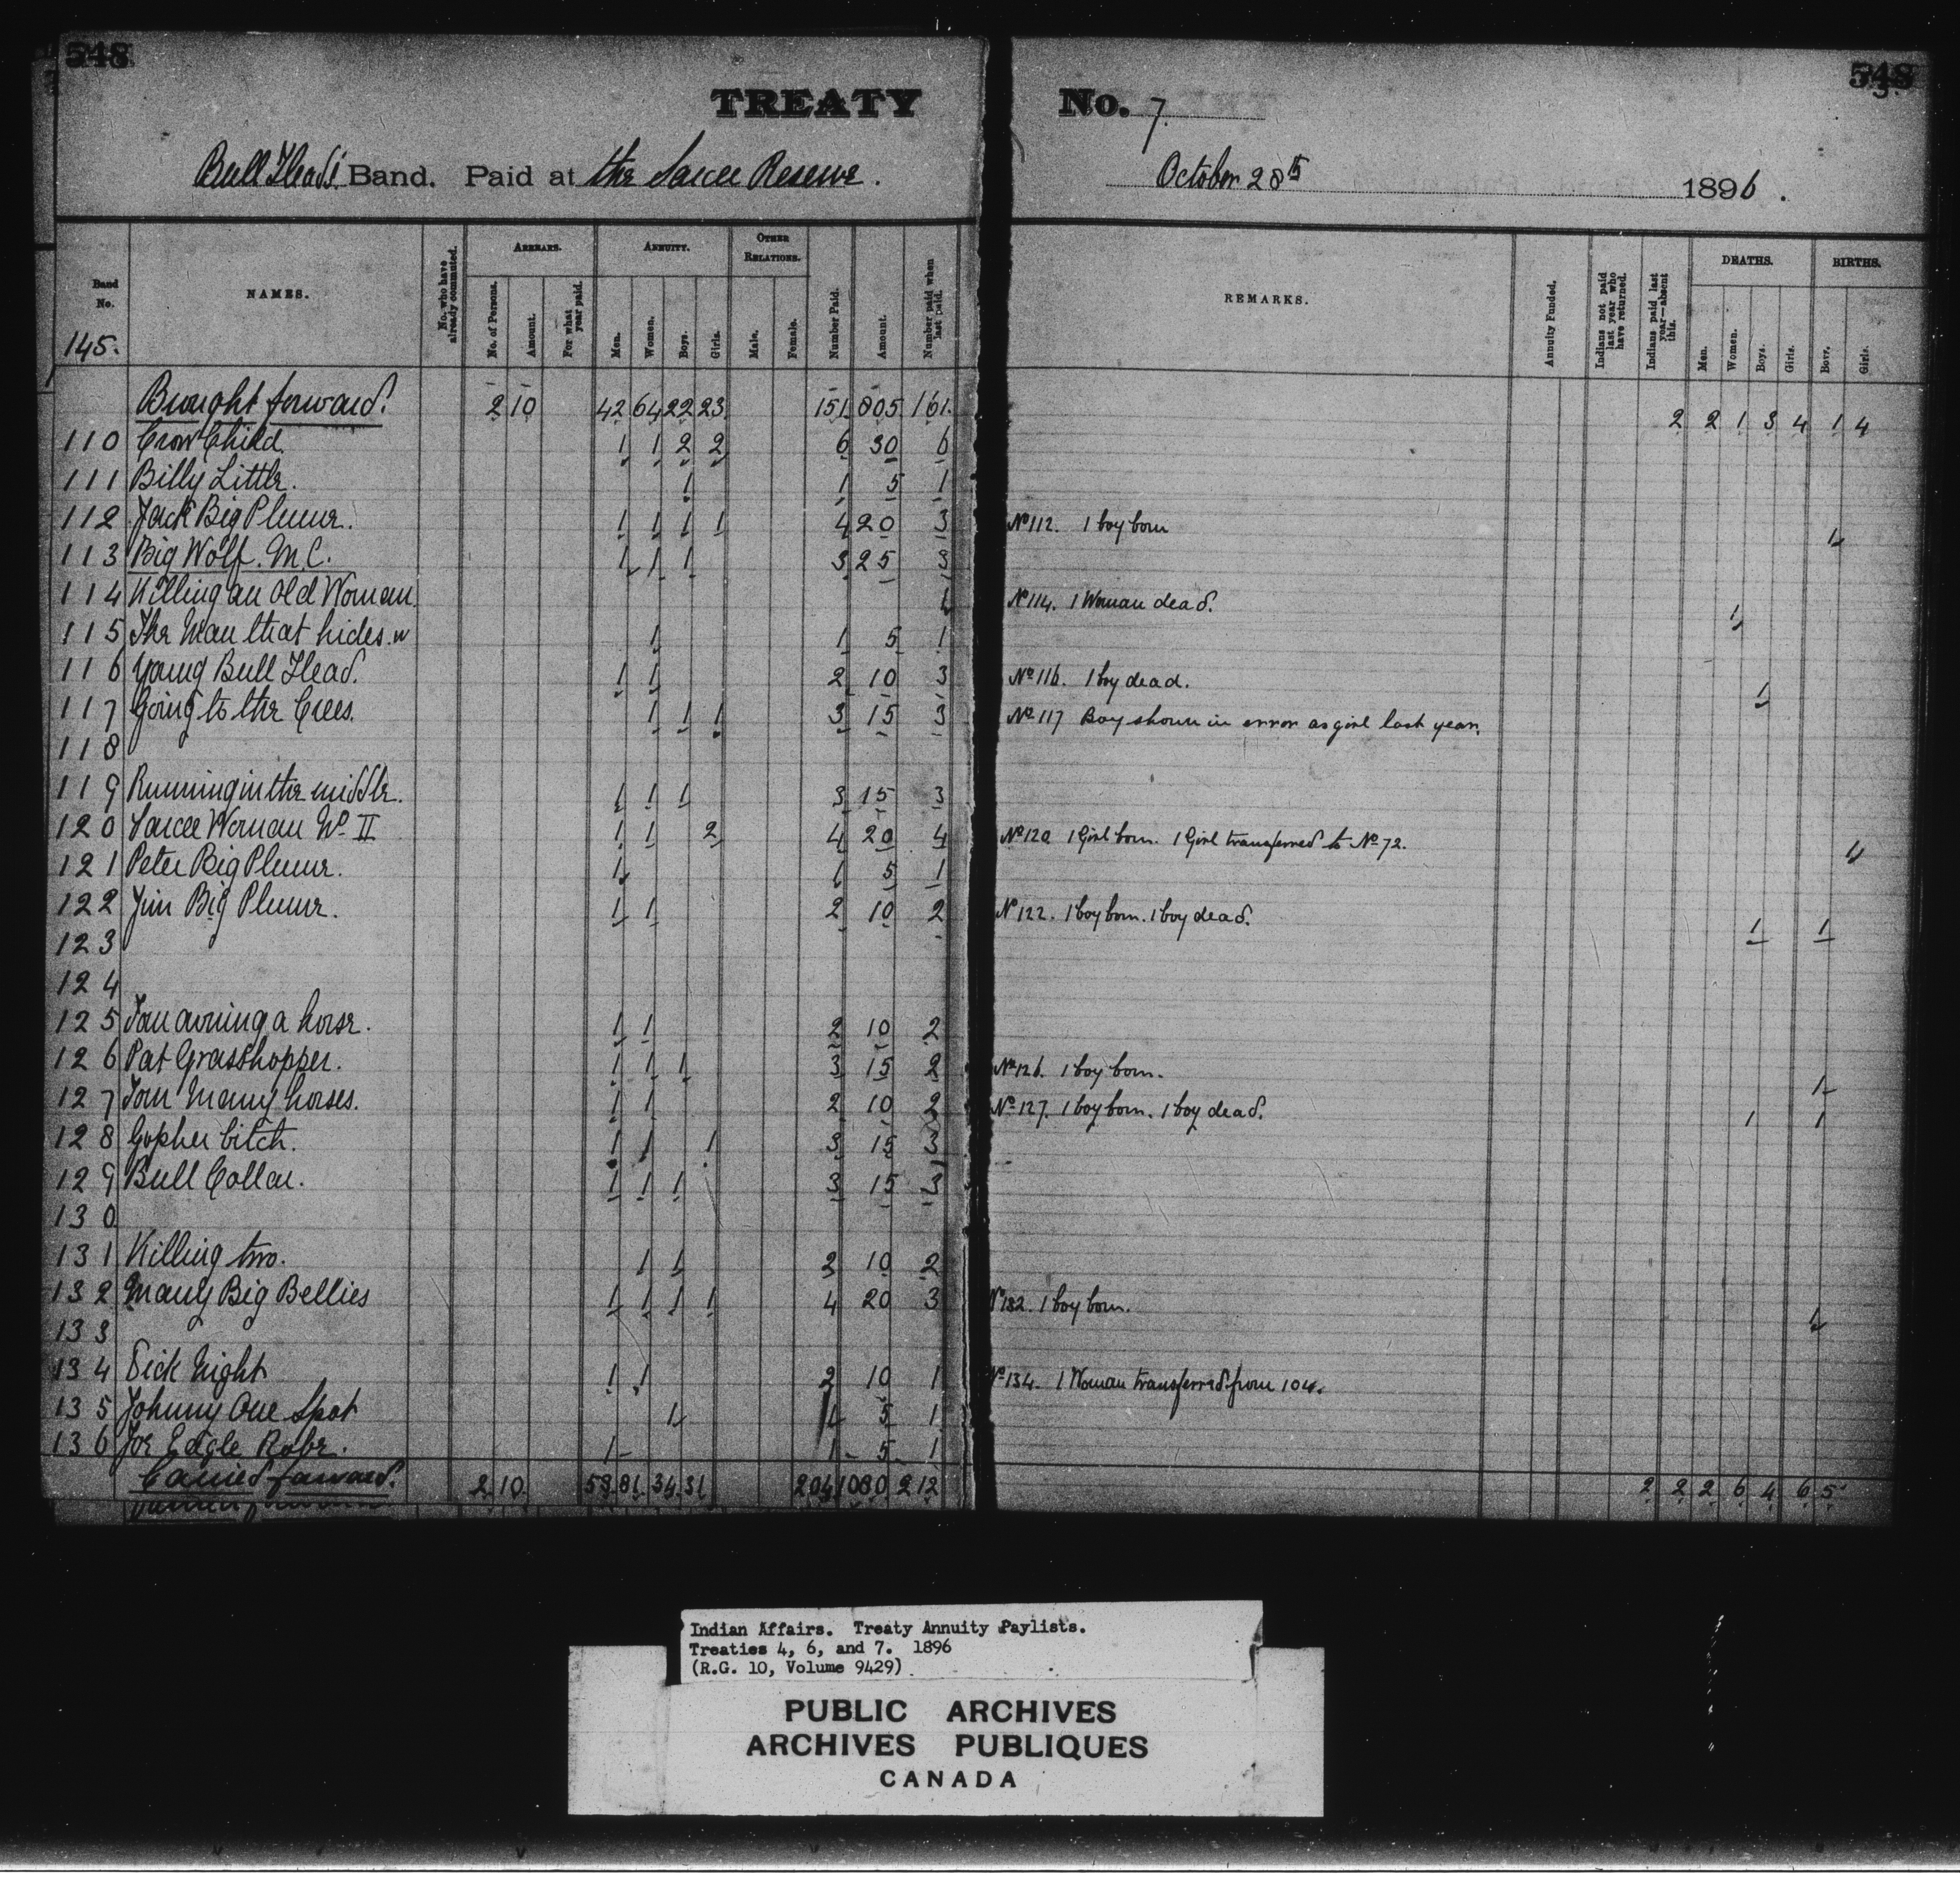 548
548
3
TREATY No. 7.
Bull Head's Band. Paid at the Sarcee Reserve. October 28th 1896.
Band No.
145.
NAMES.
No. who have already commuted.
ARREARS.
No. of Persons.
Amount.
For what year paid.
ANNUITY.
Men.
Women.
Boys.
Girls.
OTHER RELATIONS.
Male.
Female.
Number Paid.
Amount.
Number paid when last paid.
REMARKS.
Annuity Funded.
Indians not paid last year who have returned.
Indians paid last year—absent this.
DEATHS.
Men.
Women.
Boys.
Girls.
BIRTHS.
Boys.
Girls.
Brought forward. 2 10 42 64 22 23 151 805 161. 2 2 1 3 4 1 4
110 Crow Child. 1 1 2 2 6 30 6
111 Billy Little. 1 1 5 1
112 Jack Big Plume. 1 1 1 1 4 20 3 No 112. 1 boy born 1
113 Big Wolf. M.C. 1 1 1 3 25 3
114 Killing an Old Woman 1 No 114. 1 Woman dead. 1
115 The Man that hides. W 1 1 5 1
116 Young Bull Head. 1 1 2 10 3 No 116. 1 boy dead. 1
117 Going to the Crees. 1 1 1 3 15 3 No 117 Boy shown in error as girl last year.
118
119 Running in the middle. 1 1 1 3 15 3
120 Sarcee Woman No II 1 1 2 4 20 4 No 120 1 Girl born. 1 Girl transferred to No 72. 1
121 Peter Big Plume. 1 1 5 1
122 Jim Big Plume. 1 1 2 10 2 No 122. 1 boy born. 1 boy dead. 1 1
123
124
125 Tom owning a horse. 1 1 2 10 2
126 Pat Grasshopper. 1 1 1 3 15 2 No 126. 1 boy born. 1
127 Tom Many horses. 1 1 2 10 2 No 127. 1 boy born. 1 boy dead. 1 1
128 Gopher bitch. 1 1 1 3 15 3
129 Bull Collar. 1 1 1 3 15 3
130
131 Killing two. 1 1 2 10 2
132 Many Big Bellies 1 1 1 1 4 20 3 No 132. 1 boy born. 1
133
134 Dick Night 1 1 2 10 1 No 134. 1 Woman transferred from 104.
135 Johnny One Spot 1 1 5 1
136 Joe Eagle Robe. 1 1 5 1
Carried forward. 2 10 58 81 34 31 204 1080 212 2 2 2 6 4 6 5
Indian Affairs. Treaty Annuity Paylists.
Treaties 4, 6, and 7. 1896
(R.G. 10, Volume 9429)
PUBLIC ARCHIVES
ARCHIVES PUBLIQUES
CANADA